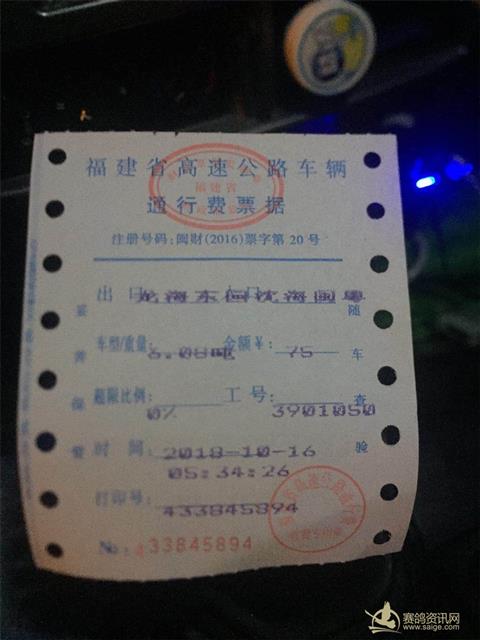 福建省高速公路车辆
通行费票据
福建省
注册号码:闽财(2016)票字第 20 号
出口: 入口:
东 沈海闽粤
车型/重量: 6.08吨 金额¥: 75
超限比例: 0% 工号: 3901050
时 间: 2018-10-16
05:34:26
打印号: 433845894
№: 433845894
随车查验
赛鸽资讯网
www.saige.com